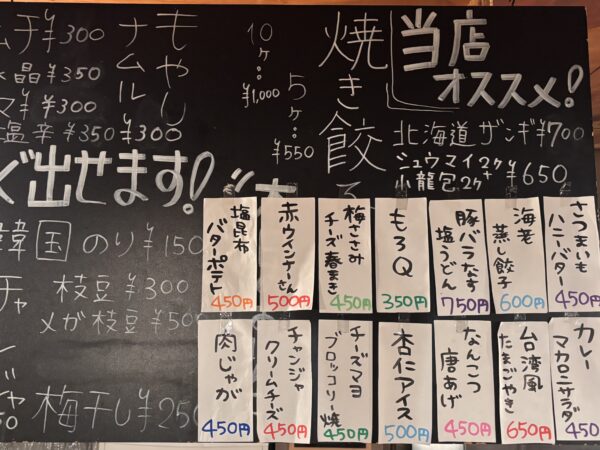 当店
オススメ!
北海道ザンギ¥700
シュウマイ2ヶ+
小龍包2ヶ ¥650
焼き餃
5ヶ…¥550
10ヶ…¥1,000
もやし
ナムル ¥300
ムチ ¥300
水晶 ¥350
マ ¥300
塩辛 ¥350
ぐ出せます!
韓国のり ¥150
枝豆 ¥300
メガ枝豆 ¥500
梅干し ¥250
さつまいも
ハニーバター
450円
海老
蒸し餃子
600円
豚バラなす
塩うどん
750円
もろQ
350円
梅ささみ
チーズ春まき
450円
赤ウインナーさん
500円
塩昆布
バターポテト
450円
カレー
マカロニサラダ
450
台湾風
たまごやき
650円
なんこつ
唐あげ
450円
杏仁アイス
500円
チーズマヨ
ブロッコリー焼
450円
チャンジャ
クリームチーズ
450円
肉じゃが
450円